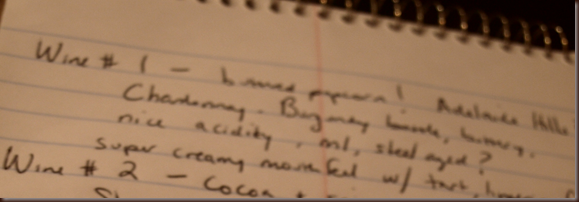 Wine # 1 – burned popcorn! Adelaide Hills
Chardonnay. Burgundy barrels, buttery.
nice acidity, steel aged?
super creamy mouthfeel w/ tart
Wine # 2 – Cocoa +